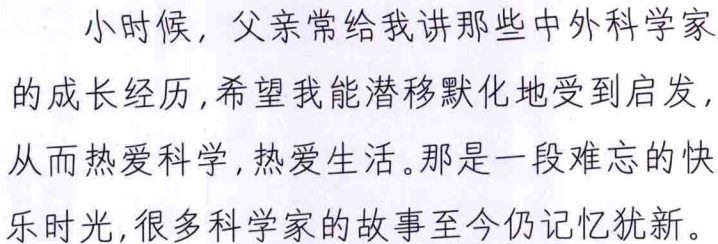 小时候，父亲常给我讲那些中外科学家
的成长经历，希望我能潜移默化地受到启发，
从而热爱科学，热爱生活。那是一段难忘的快
乐时光，很多科学家的故事至今仍记忆犹新。